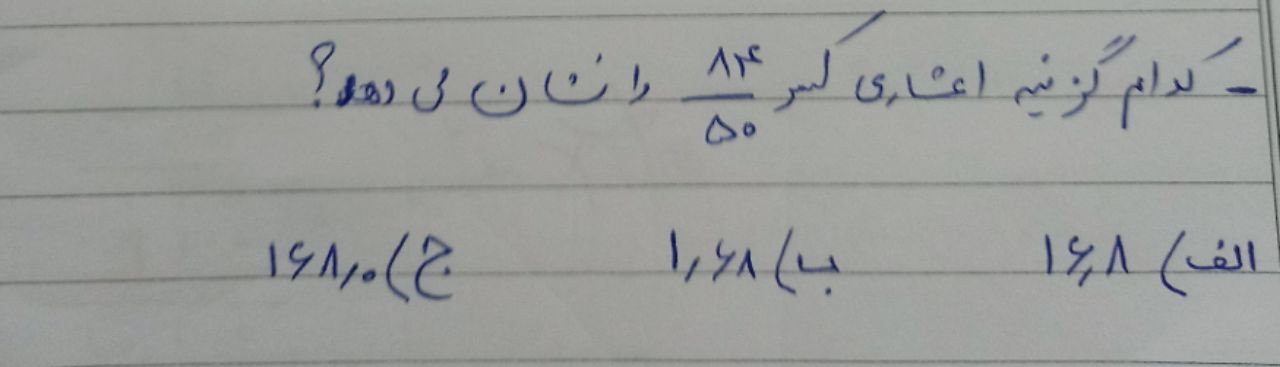 - کدام گزینه اعشاری کسر ۸۴/۵۰ را نشان می دهد؟
الف) ۱۶٫۸ ب) ۱٫۶۸ ج) ۱۶۸٫۰